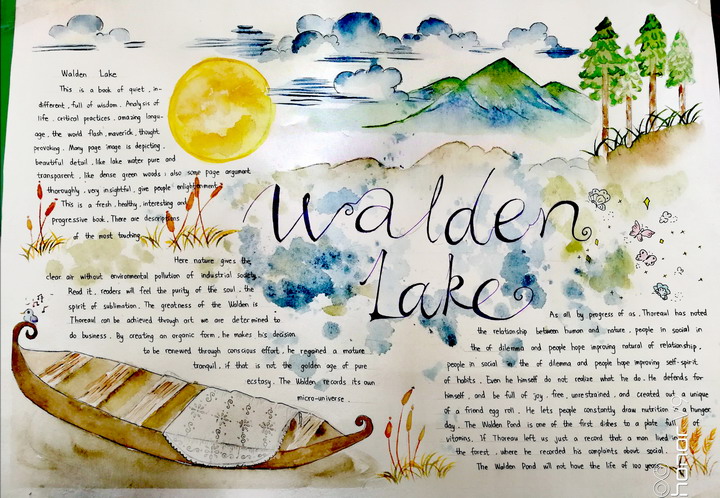 Walden Lake
This is a book of quiet , in-
different , full of wisdom . Analysis of
life , critical practices , amazing langu-
age , the world flash , maverick , thought
provoking . Many page image is depicting ,
beautiful detail , like lake water pure and
transparent , like dense green woods ; also some page argument
thoroughly , very insightful , give people enlightenment .
This is a fresh , healthy , interesting and
progressive book . There are descriptions
of the most touching
Here nature gives the
clear air without environmental pollution of industrial society
Read it , readers will feel the purity of the soul , the
spirit of sublimation . The greatness of the Walden is
Thoreaul can be achieved through art we are determined to
do business . By creating an organic form , he makes his decision
to be renewed through conscious effort , he regained a mature
tranquil , if that is not the golden age of pure
ecstasy . The Walden records its own
micro-universe .
Walden
Lake
As all by progress of as . Thoreaul has noted
the relationship between human and nature , people in social in
the of dilemma and people hope improving natural of relationship ,
people in social in the of dilemma and people hope improving self-spirit
of habits . Even he himself do not realize what he do . He defends for
himself , and be full of joy , free , unrestrained , and created out a unique
of a friend egg roll . He lets people constantly draw nutrition as hunger
day . The Walden Pond is one of the first dishes to a plate full of
vitamins . If Thoreaul left us just a record that a man lived in
the forest , where he recorded his complaints about social .
The Walden Pond will not have the life of 100 years